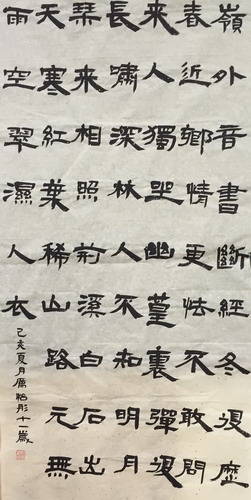 嶺外音書斷經冬復歷
春近鄉情更怯不敢問
來人獨坐幽篁裏彈復
長嘯深林人不知明月
琹来相照荊溪白石出
天寒紅葉稀山路元無
雨空翠濕人衣
己亥夏月怡彤十一歲